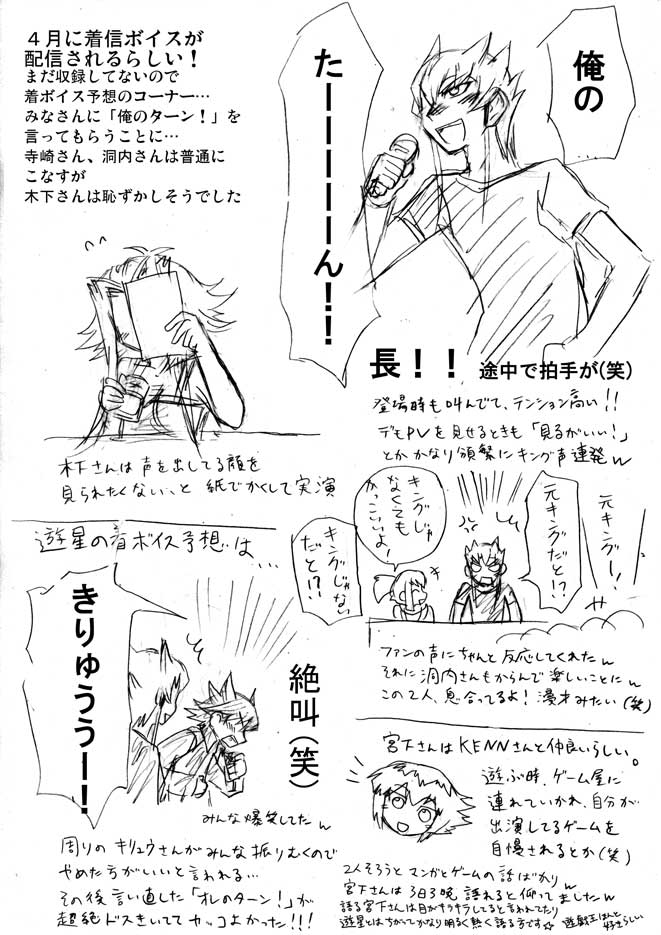 ４月に着信ボイスが
配信されるらしい！
まだ収録してないので
着ボイス予想のコーナー…
みなさんに「俺のターン！」を
言ってもらうことに…
寺崎さん、洞内さんは普通に
こなすが
木下さんは恥ずかしそうでした
俺の
たーーーーーん！！
長！！
途中で拍手が(笑)
登場時も叫んでて、テンション高い！！
デモPVを見せるときも「見るがいい！」
とか かなり頻繁にキング声連発w
木下さんは声を出してる顔を
見られたくない、と 紙でかくして実演
元キングー！
元キングだと！？
キングじゃ
なくても
かっこいいよ！
キングじゃない
だと！？
ファンの声にちゃんと反応してくれたw
それに洞内さんもからんで楽しいことにw
この2人、息合ってるよ！漫才みたい(笑)
遊星の着ボイス予想は…
きりゅううー！！
絶叫(笑)
みんな爆笑してたw
周りのキリュウさんがみんな振りむくので
やめた方がいいと言われる…
その後言い直した「オレのターン！」が
超絶ドスきいててカッコよかった！！！
宮下さんはKENNさんと仲良いらしい。
遊ぶ時、ゲーム屋に
連れていかれ、自分が
出演してるゲームを
自慢されるとか(笑)
2人そろうとマンガとゲームの話ばかりw
宮下さんは3日3晩 語れると仰ってましたw
語る宮下さんは目がキラキラしてると言われてたり
遊星とはちがってかなり明るく熱く語る方です☆ 遊戯王ほんと
好きらしい